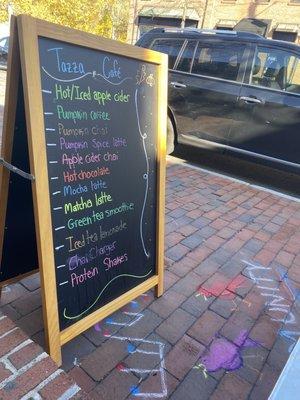 Tazza Café
Hot/Iced apple cider
Pumpkin coffee
Pumpkin Chai
Pumpkin Spice latte
Apple cider chai
Hot chocolate
Mocha latte
Matcha latte
Green tea smoothie
Iced tea lemonade
Chai Charger
Protein Shakes